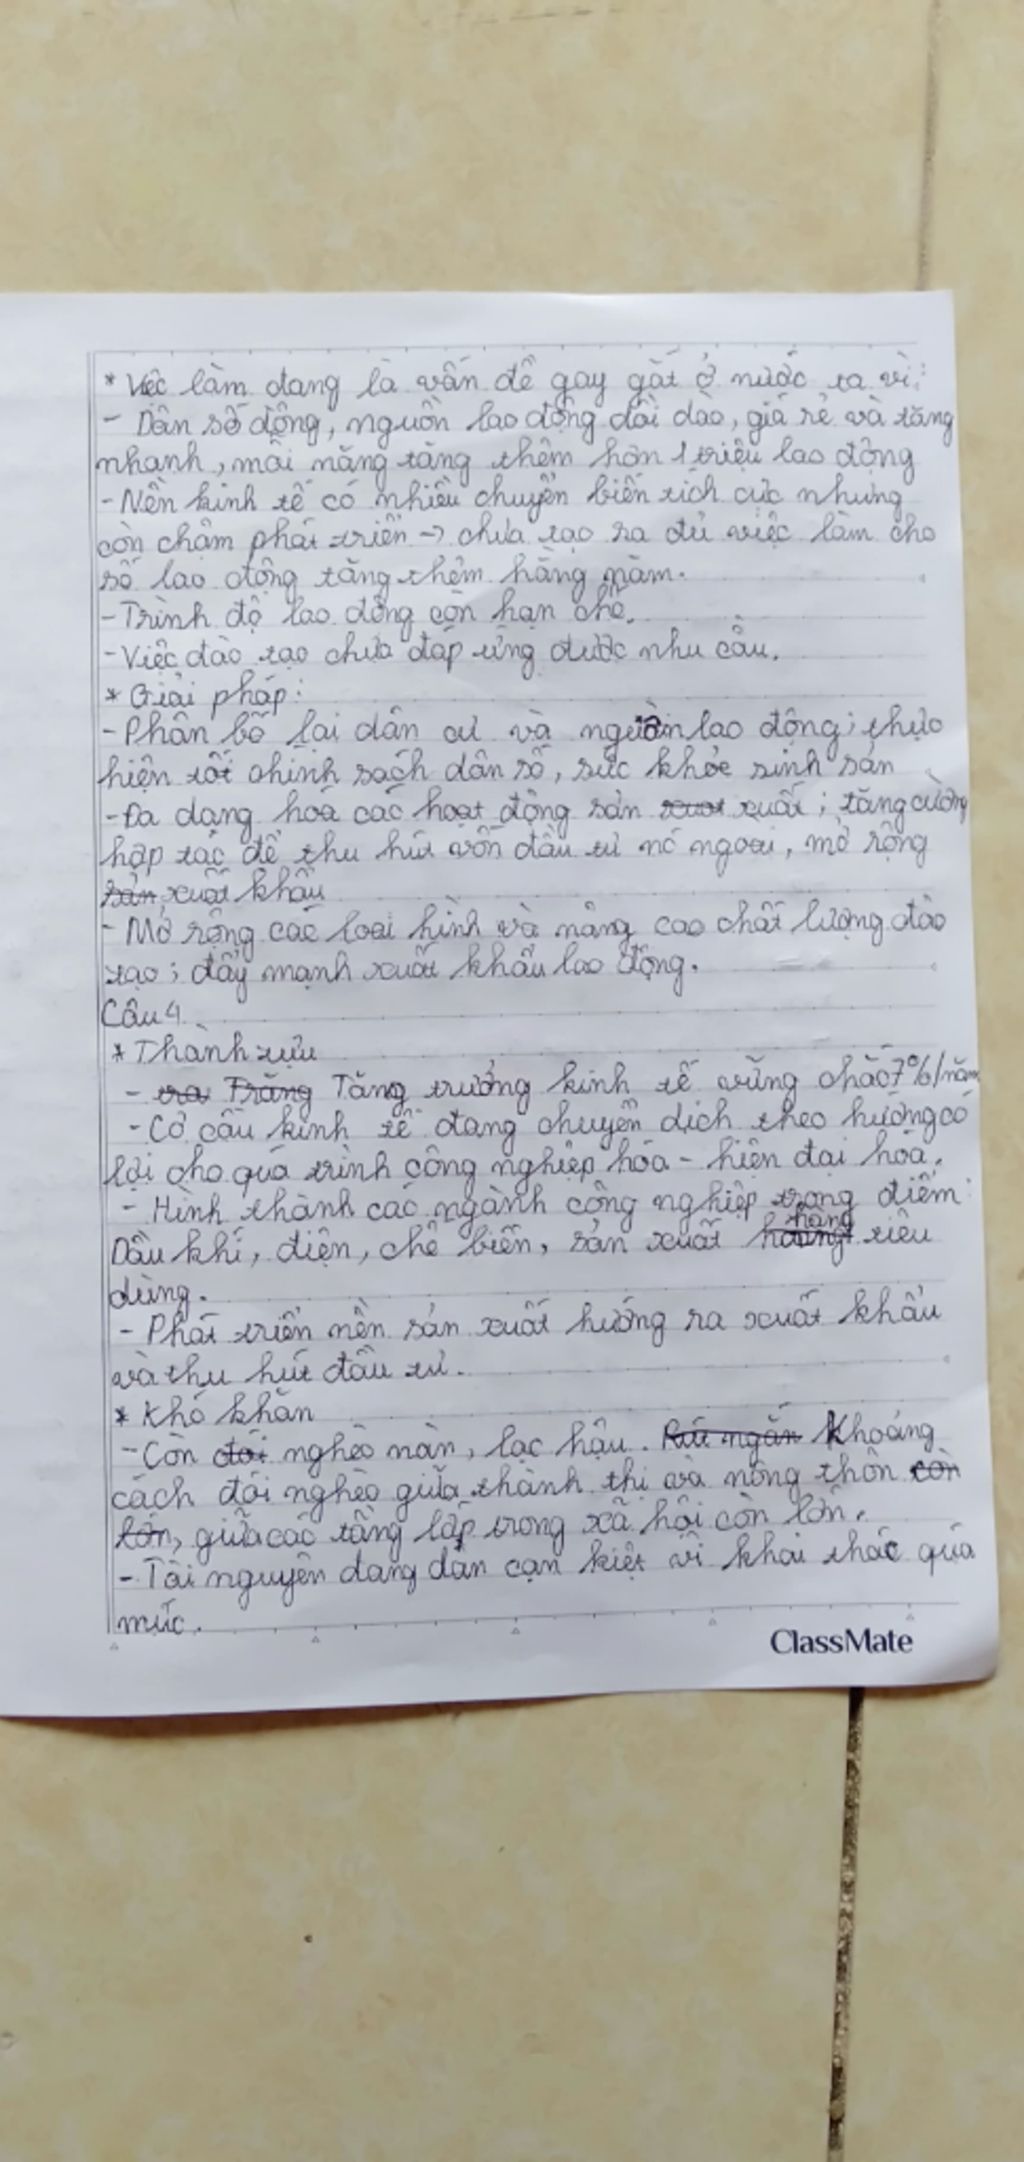 * Việc làm đang là vấn đề gay gắt ở nước ta vì:
- Dân số đông, nguồn lao động dồi dào, giá rẻ và tăng
nhanh, mỗi năng tăng thêm hơn 1 triệu lao động
- Nền kinh tế có nhiều chuyển biến tích cực nhưng
còn chậm phát triển → chưa tạo ra đủ việc làm cho
số lao động tăng thêm hằng năm.
- Trình độ lao động còn hạn chế.
- Việc đào tạo chưa đáp ứng được nhu cầu.
* Giải pháp:
- Phân bố lại dân cư và nguồn lao động; thực
hiện tốt chính sách dân số, sức khỏe sinh sản
- Đa dạng hoá các hoạt động sản xuất; tăng cường
hợp tác để thu hút vốn đầu tư nc ngoài, mở rộng
sản xuất khẩu
- Mở rộng các loại hình và nâng cao chất lượng đào
tạo; đẩy mạnh xuất khẩu lao động.
Câu 4.
* Thành tựu
- Trăng Tăng trưởng kinh tế vững chắc 7%/năm
- Cơ cấu kinh tế đang chuyển dịch theo hướng có
lợi cho quá trình công nghiệp hóa - hiện đại hóa.
- Hình thành các ngành công nghiệp trọng điểm:
Dầu khí, điện, chế biến, sản xuất hàng tiêu
dùng.
- Phát triển nền sản xuất hướng ra xuất khẩu
và thu hút đầu tư.
* Khó khăn
- Còn đói nghèo nàn, lạc hậu. Rút ngắn Khoảng
cách đói nghèo giữa thành thị và nông thôn còn
lớn, giữa các tầng lớp trong xã hội còn lớn.
- Tài nguyên đang dần cạn kiệt vì khai thác quá
mức.
ClassMate